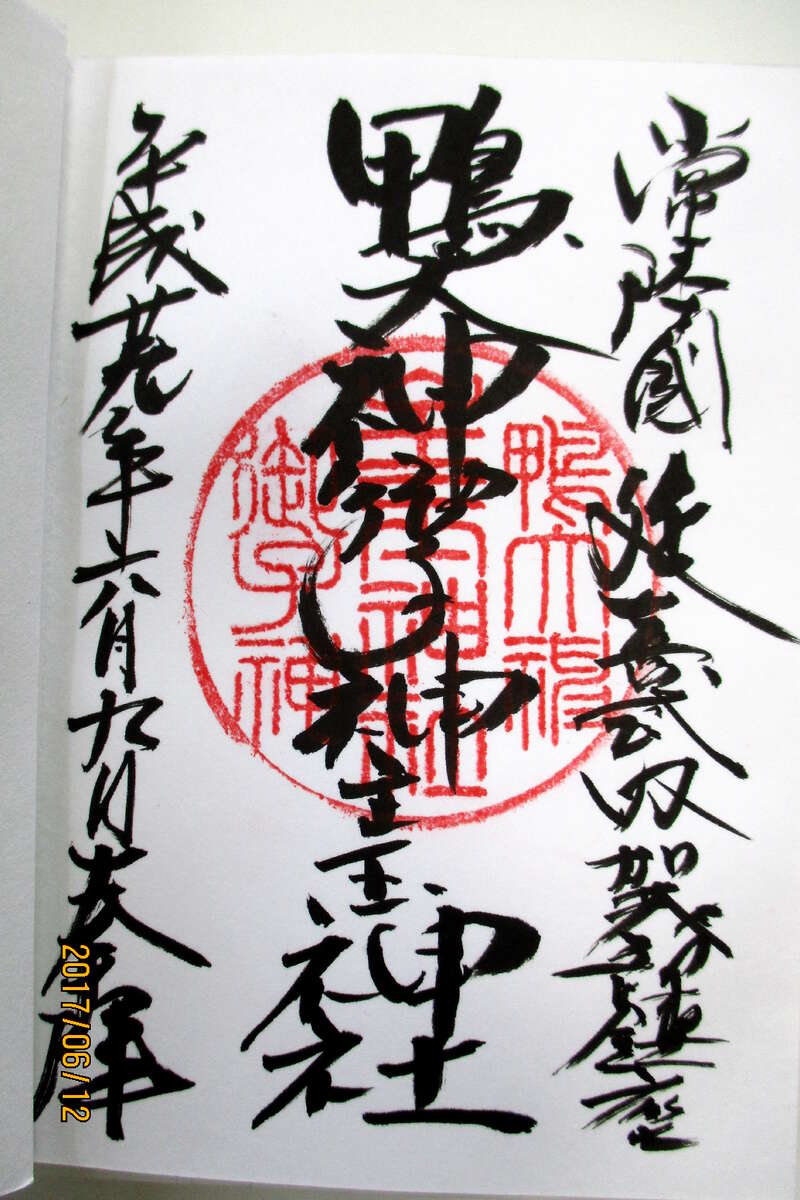 常陸國 延喜式内 加茂部鎮座
鴨大神御子神主玉神社
平成廿九年六月九日奉拝
鴨大神
主玉神社
御子神
2017/06/12